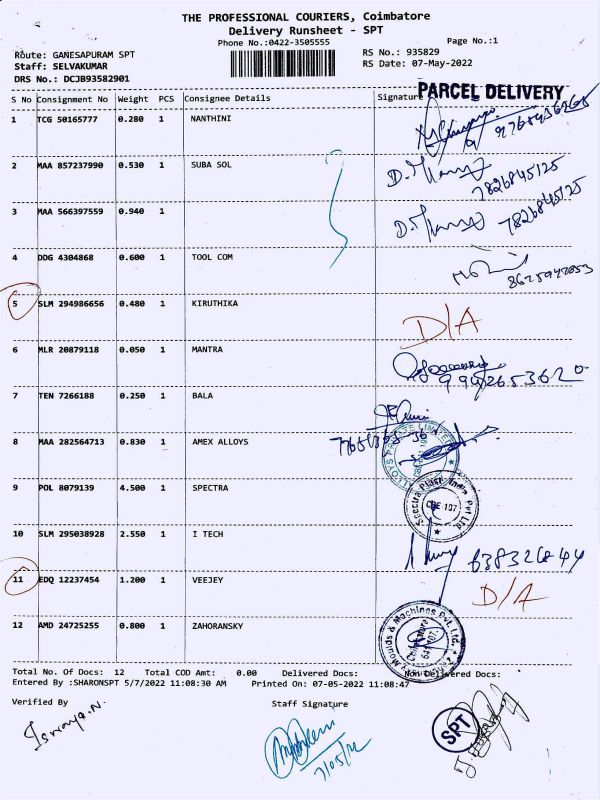 THE PROFESSIONAL COURIERS, Coimbatore
Delivery Runsheet - SPT
Phone No.:0422-3505555
Page No.:1
Route: GANESAPURAM SPT
RS No.: 935829
Staff: SELVAKUMAR
RS Date: 07-May-2022
DRS No.: DCJB93582901
PARCEL DELIVERY
S No Consignment No Weight PCS Consignee Details Signature
1 TCG 50165777 0.280 1 NANTHINI
2 MAA 857237990 0.530 1 SUBA SOL
7826845125
3 MAA 566397559 0.940 1
7826845125
4 DDG 4304868 0.600 1 TOOL COM
5 SLM 294986656 0.480 1 KIRUTHIKA D/A
6 MLR 20879118 0.050 1 MANTRA
7 TEN 7266188 0.250 1 BALA
8 MAA 282564713 0.830 1 AMEX ALLOYS
9 POL 8079139 4.500 1 SPECTRA
Spectra Plast India Pvt Ltd
10 SLM 295038928 2.550 1 I TECH
11 EDQ 12237454 1.200 1 VEEJEY D/A
12 AMD 24725255 0.800 1 ZAHORANSKY
Moulds & Machines Pvt. Ltd.
Total No. Of Docs: 12 Total COD Amt: 0.00 Delivered Docs: Non Delivered Docs:
Entered By :SHARONSPT 5/7/2022 11:08:30 AM Printed On: 07-05-2022 11:08:47
Verified By Staff Signature
SPT
7/05/22